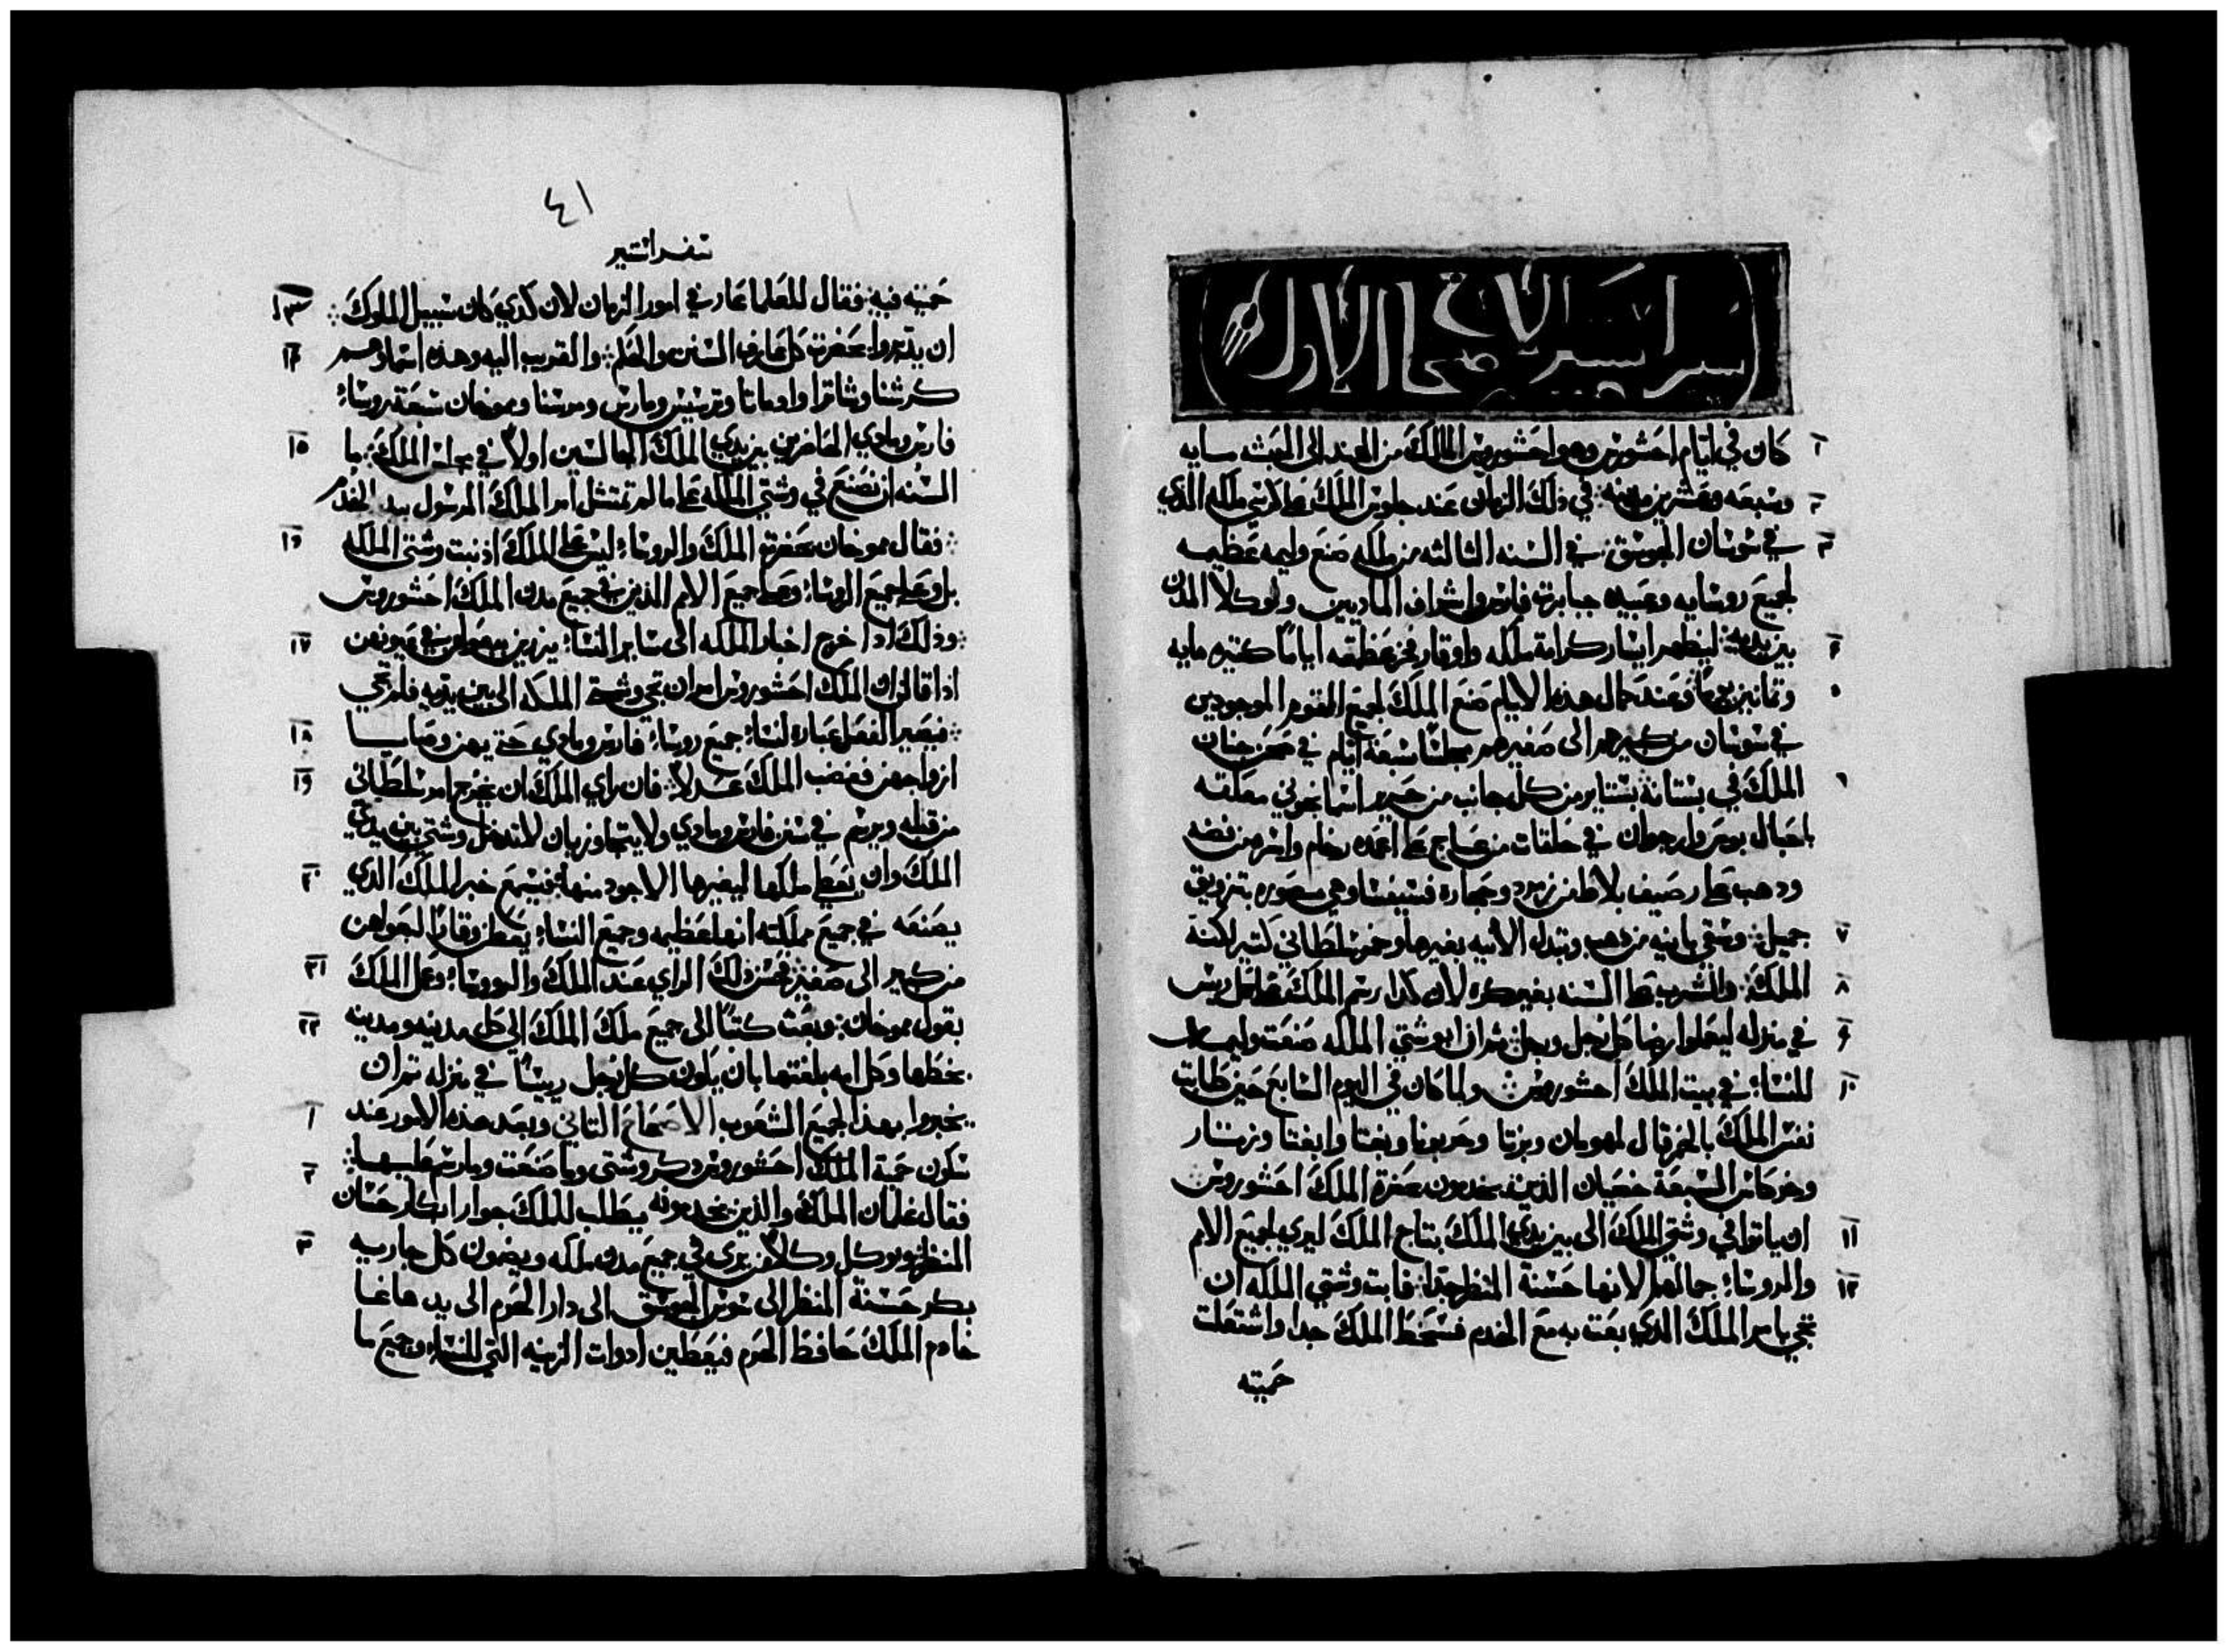 سفر استير الاصحاح الاول
١ كان في ايام احشورش وهو احشوروس المالك من الهند الى الحبشه مايه
٢ وسبعه وعشرين مدينه في ذلك الزمان عند جلوس الملك على كرسي ملكه الذي
٣ في شوشان الجوسق في السنه الثالثه من ملكه صنع وليمه عظيمه
لجميع روسايه وعبيده جبابرت فارس واشراف الماديين ووكلا المدن
٤ بين يديه ليظهر ايسار كرامة ملكه واوقار فخر عظمته اياما كثيره مايه
٥ وثمانين يوما وعند كمال هذه الايام صنع الملك لجميع القوم الموجودين
في شوشان من كبيرهم الى صغيرهم مجلسا سبعة ايام في صحن جنان
٦ الملك في بستانه بستاير من كل جانب من حرير اسمانجوني معلقه
باحبال بوص وارجوان في حلقات من عاج على اعمده رخام واسره من فضه
ودهب على رصيف بلاط من زمرد وحجاره فسيفسا وهي مصوره بتزويق
٧ جميل وسقي بانيه من دهب وتبدل الانيه بغيرها وخمر سلطاني كتير لكنة
٨ الملك والشرب على السنه بغير كره لان كدا رسم الملك على كل ريس
٩ في منزله ليعملوا رضا كل رجل ورجل ثم ان وشتي الملكه صنعت وليمه
١٠ للنساء في بيت الملك احشوروش ولما كان في اليوم السابع حين طابت
نفس الملك بالخمر قال لمهومان وبزتا وحربونا وبغتا وابغتا وزيتار
وخركاس السبعة خصيان الذين يخدمون حضرة الملك احشوروش
١١ ان ياتوا في وشتي الملكه الى بين يدي الملك بتاج الملك ليري لجميع الامم
١٢ والروساء جمالها لانها حسنة المنظر جدا فابت وشتي الملكه ان
تجي بامر الملك الذي بعت به مع الخدم فسخط الملك جدا واشتعلت
حميته
٤١
سفر استير
حميته فيه فقال للعلما عارفي امور الزمان لان كدي كان سبيل الملوك ١٣
ان يدبروا بحضرت كل عارف السنن والحكم والقريب اليه وهذه اسماوهم ١٤
كرشنا وشاترا وادماتا وترسيس ومارس ومرسنا ومموخان سبعة روساء
فارس ومادي الحاضرين بين يدي الملك الجالسين اولا في مجلس الملك ما ١٥
السنه ان نصنع في وشتي الملكه على ما لم تمتثل امر الملك المرسول بيد الخدم
فقال مموخان بحضرة الملك والروساء ليس على الملك اذنبت وشتي الملكه ١٦
بل وعلى جميع الروساء وعلى جميع الامم الذين في جميع مدن الملك احشوروش
وذلك اذا خرج اخبار الملكه الى ساير النساء يزرين بعولهن في عيونهن ١٧
اذا قالن ان الملك احشوروش امر ان تجي وشتي الملكه الى بين يديه فلم تجي
فيصير الفعل عباره لنساء جميع روساء فارس ومادي حتى يهن ١٨
ازواجهن فغضب الملك عدلا فان راي الملك ان يخرج امر سلطاني ١٩
من قبله ويرسم في سنن فارس ومادي ولا يتجاوز بان لا تدخل وشتي بين يدي
الملك وان يعطي ملكها لغيرها الاجود منها فيسمع خبر الملك الذي ٢٠
يصنعه في جميع مملكته انها عظيمه وجميع النساء يعطن وقارا لبعولهن
من كبير الى صغير فحسن ذلك الراي عند الملك والروساء وعمل الملك ٢١
بقول مموخان وبعث كتبا الى جميع ملك الملك الى كل مدينه ومدينه ٢٢
بخطها وكل امه بلغتها بان يكون كل رجل رييسا في منزله ثم ان
يخبروا بهذا لجميع الشعوب الاصحاح التاني وبعد هذه الامور عند ١
سكون حمية الملك احشوروش دكر وشتي وما صنعت وما رسم عليها ٢
فقال غلمان الملك والذين يخدمونه يطلب للملك جوار ابكار حسان
المنظر ويوكل وكلا من يرى في جميع مدن ملكه ويضمون كل جاريه ٣
بكر حسنة المنظر الى شوش الجوسق الى دار الحرم الى يد هاغا
خادم الملك حافظ الحرم فيعطين ادوات الزينه التي للنساء وجميع ما